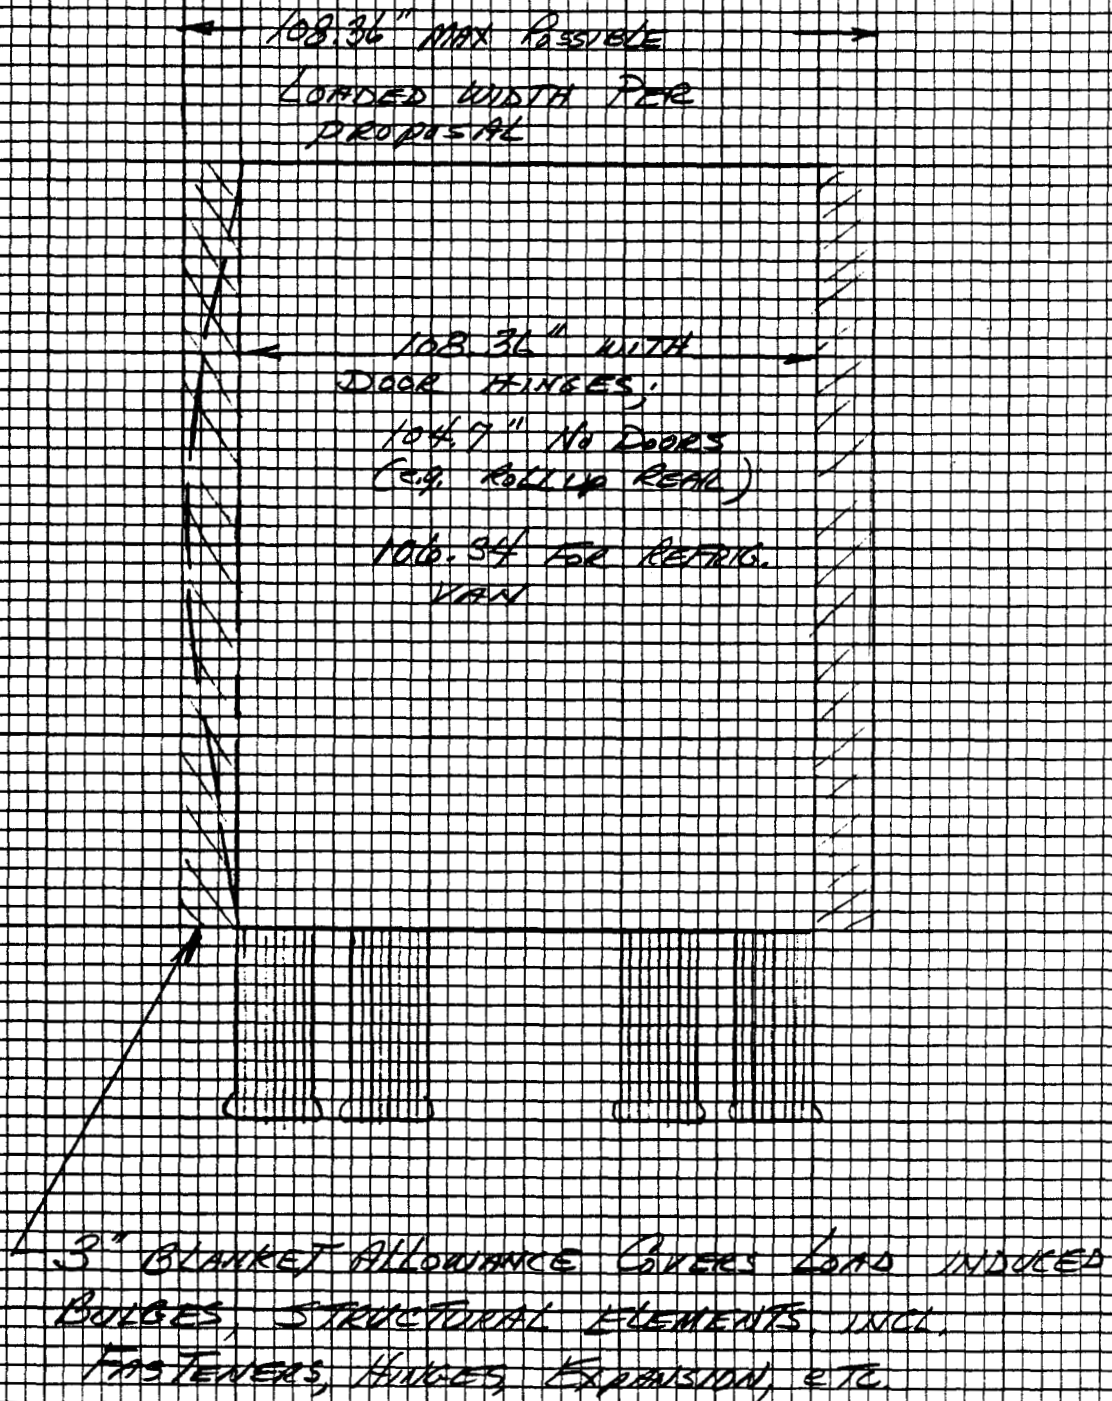 108.36" MAX POSSIBLE
LOADED WIDTH PER
PROPOSAL
108.36" WITH
DOOR HINGES;
104.7" NO DOORS
(e.g. ROLLUP REAR)
106.54 FOR REFRIG.
VAN
3" BLANKET ALLOWANCE COVERS LOAD INDUCED
BULGES, STRUCTURAL ELEMENTS, INCL.
FASTENERS, HINGES, EXPANSION, ETC.